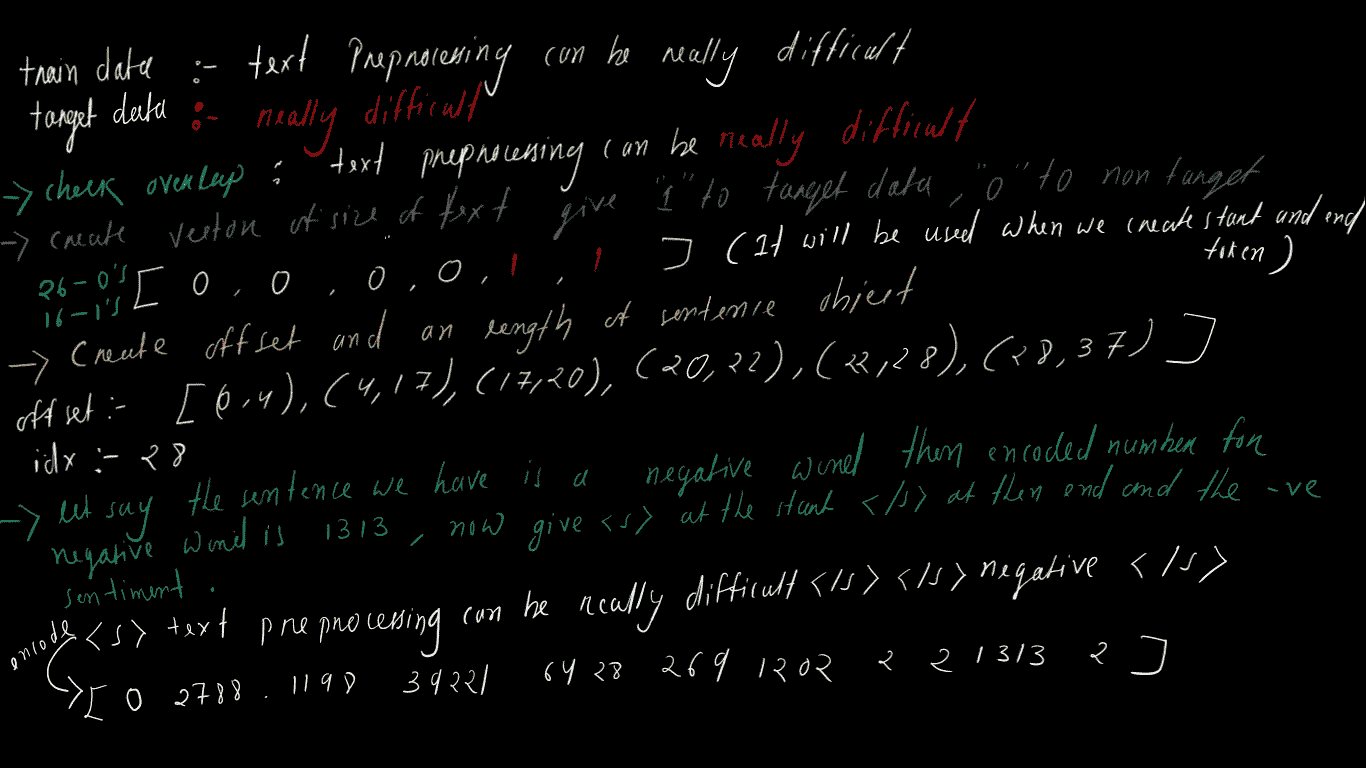 train data :- text Preprocessing can be really difficult
target data :- really difficult
-> check overlap : text preprocessing can be really difficult
-> create vector of size of text give "1" to target data, "0" to non target
26-0's
16-1's
[ 0 , 0 , 0 , 0 , 1 , 1 ] (It will be used when we create start and end token)
-> Create offset and an length of sentence object
offset :- [(0,4), (4,17), (17,20), (20,22), (22,28), (28,37)]
idx :- 28
-> let say the sentence we have is a negative word then encoded number for
negative word is 1313, now give <s> at the start </s> at then end and the -ve
sentiment.
encode <s> text preprocessing can be really difficult </s> </s> negative </s>
[ 0 2788 . 1198 39221 6428 269 1202 2 2 1313 2 ]